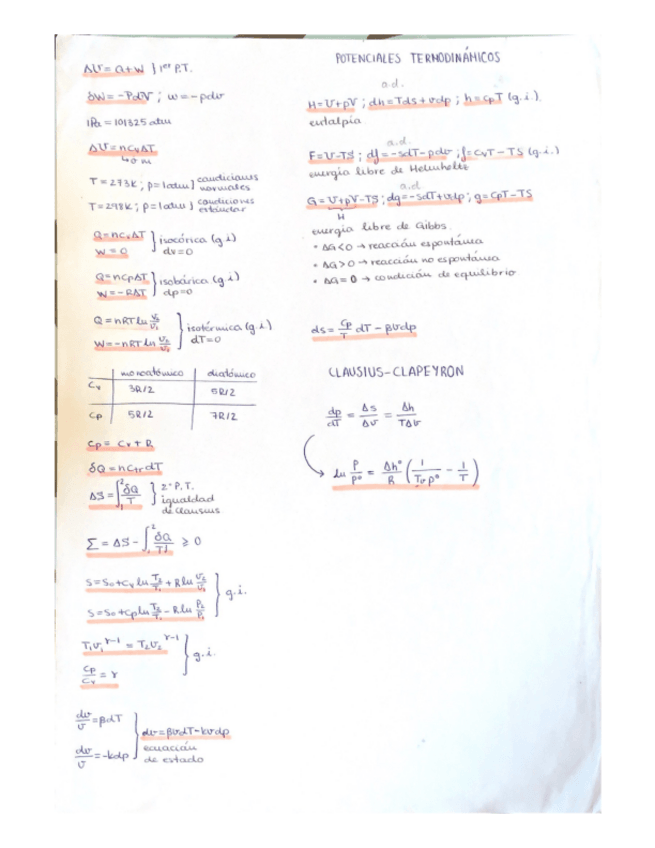 ΔU = Q + W } 1er P.T.
δW = -PdV ; w = -pdv
1Pa = 101325 atm
ΔU = n cv ΔT
↳ ó m
T = 273K ; p = 1atm } condiciones normales
T = 298K ; p = 1atm } condiciones estándar
Q = n cv ΔT
W = 0
} isocórica (g.i)
dv = 0
Q = n cp ΔT
W = -RΔT
} isobárica (g.i)
dp = 0
Q = nRT ln V2/V1
W = -nRT ln V2/V1
} isotérmica (g.i.)
dT = 0
monoatómico diatómico
Cv 3R/2 5R/2
Cp 5R/2 7R/2
Cp = Cv + R
δQ = n Ctr dT
ΔS = ∫₁² δQ/T } 2º P.T.
igualdad
de Clausius
Σ = ΔS - ∫₁² δQ/T ≥ 0
s = s₀ + cv ln T2/T1 + R ln v2/v1
s = s₀ + cp ln T2/T1 - R ln P2/P1
} g.i.
T₁v₁^γ-1 = T₂v₂^γ-1
cp/cv = γ
} g.i.
dv/v = βdT
dv/v = -kdp
} dv = βvdT - kvdp
ecuación
de estado
POTENCIALES TERMODINÁMICOS
a.d.
H = U + pV ; dh = Tds + vdp ; h = cpT (g.i.)
entalpía
a.d.
F = U - TS ; df = -sdT - pdv ; f = cvT - TS (g.i.)
energía libre de Helmholtz
a.d.
G = U + pV - TS ; dg = -sdT + vdp ; g = cpT - TS
H
energía libre de Gibbs.
• ΔG < 0 → reacción espontánea
• ΔG > 0 → reacción no espontánea
• ΔG = 0 → condición de equilibrio
ds = cp/T dT - βvdp
CLAUSIUS-CLAPEYRON
dp/dT = Δs/Δv = Δh/TΔv
ln P/P° = Δh°/R (1/Tv p° - 1/T)